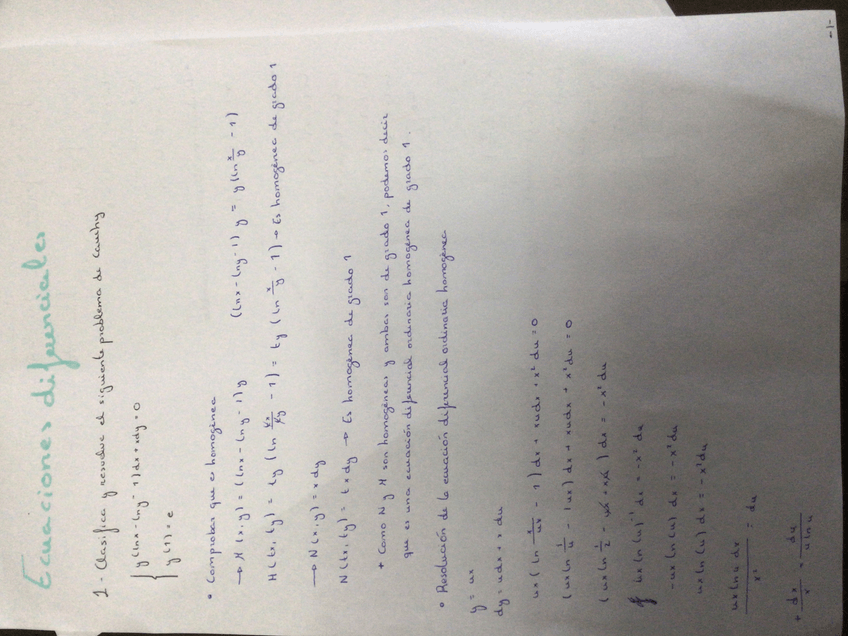 Ecuaciones diferenciales
1- Clasifica y resuelve el siguiente problema de Cauchy
{ y(lnx - lny - 1)dx + xdy = 0
y(1) = e
• Comprobar que es homogénea
→ M(x,y) = (lnx - lny - 1)y (lnx - lny - 1)y = y(ln x/y - 1)
M(tx, ty) = ty(ln tx/ty - 1) = ty(ln x/y - 1) → Es homogénea de grado 1
→ N(x,y) = xdy
N(tx, ty) = txdy → Es homogénea de grado 1
* Como N y M son homogéneas y ambas son de grado 1, podemos decir
que es una ecuación diferencial ordinaria homogénea de grado 1.
• Resolución de la ecuación diferencial ordinaria homogénea
y = ux
dy = udx + xdu
ux(ln x/ux - 1)dx + xudx + x²du = 0
(ux ln 1/u - 1ux)dx + xudx + x²du = 0
(ux ln 1/u - ux + xu)dx = -x²du
ux ln(u)⁻¹ dx = -x² du
-ux ln(u) dx = -x² du
ux ln(u) dx = -x² du
ux ln u dx / x² = du
+ dx/x = du/u ln u
-1-